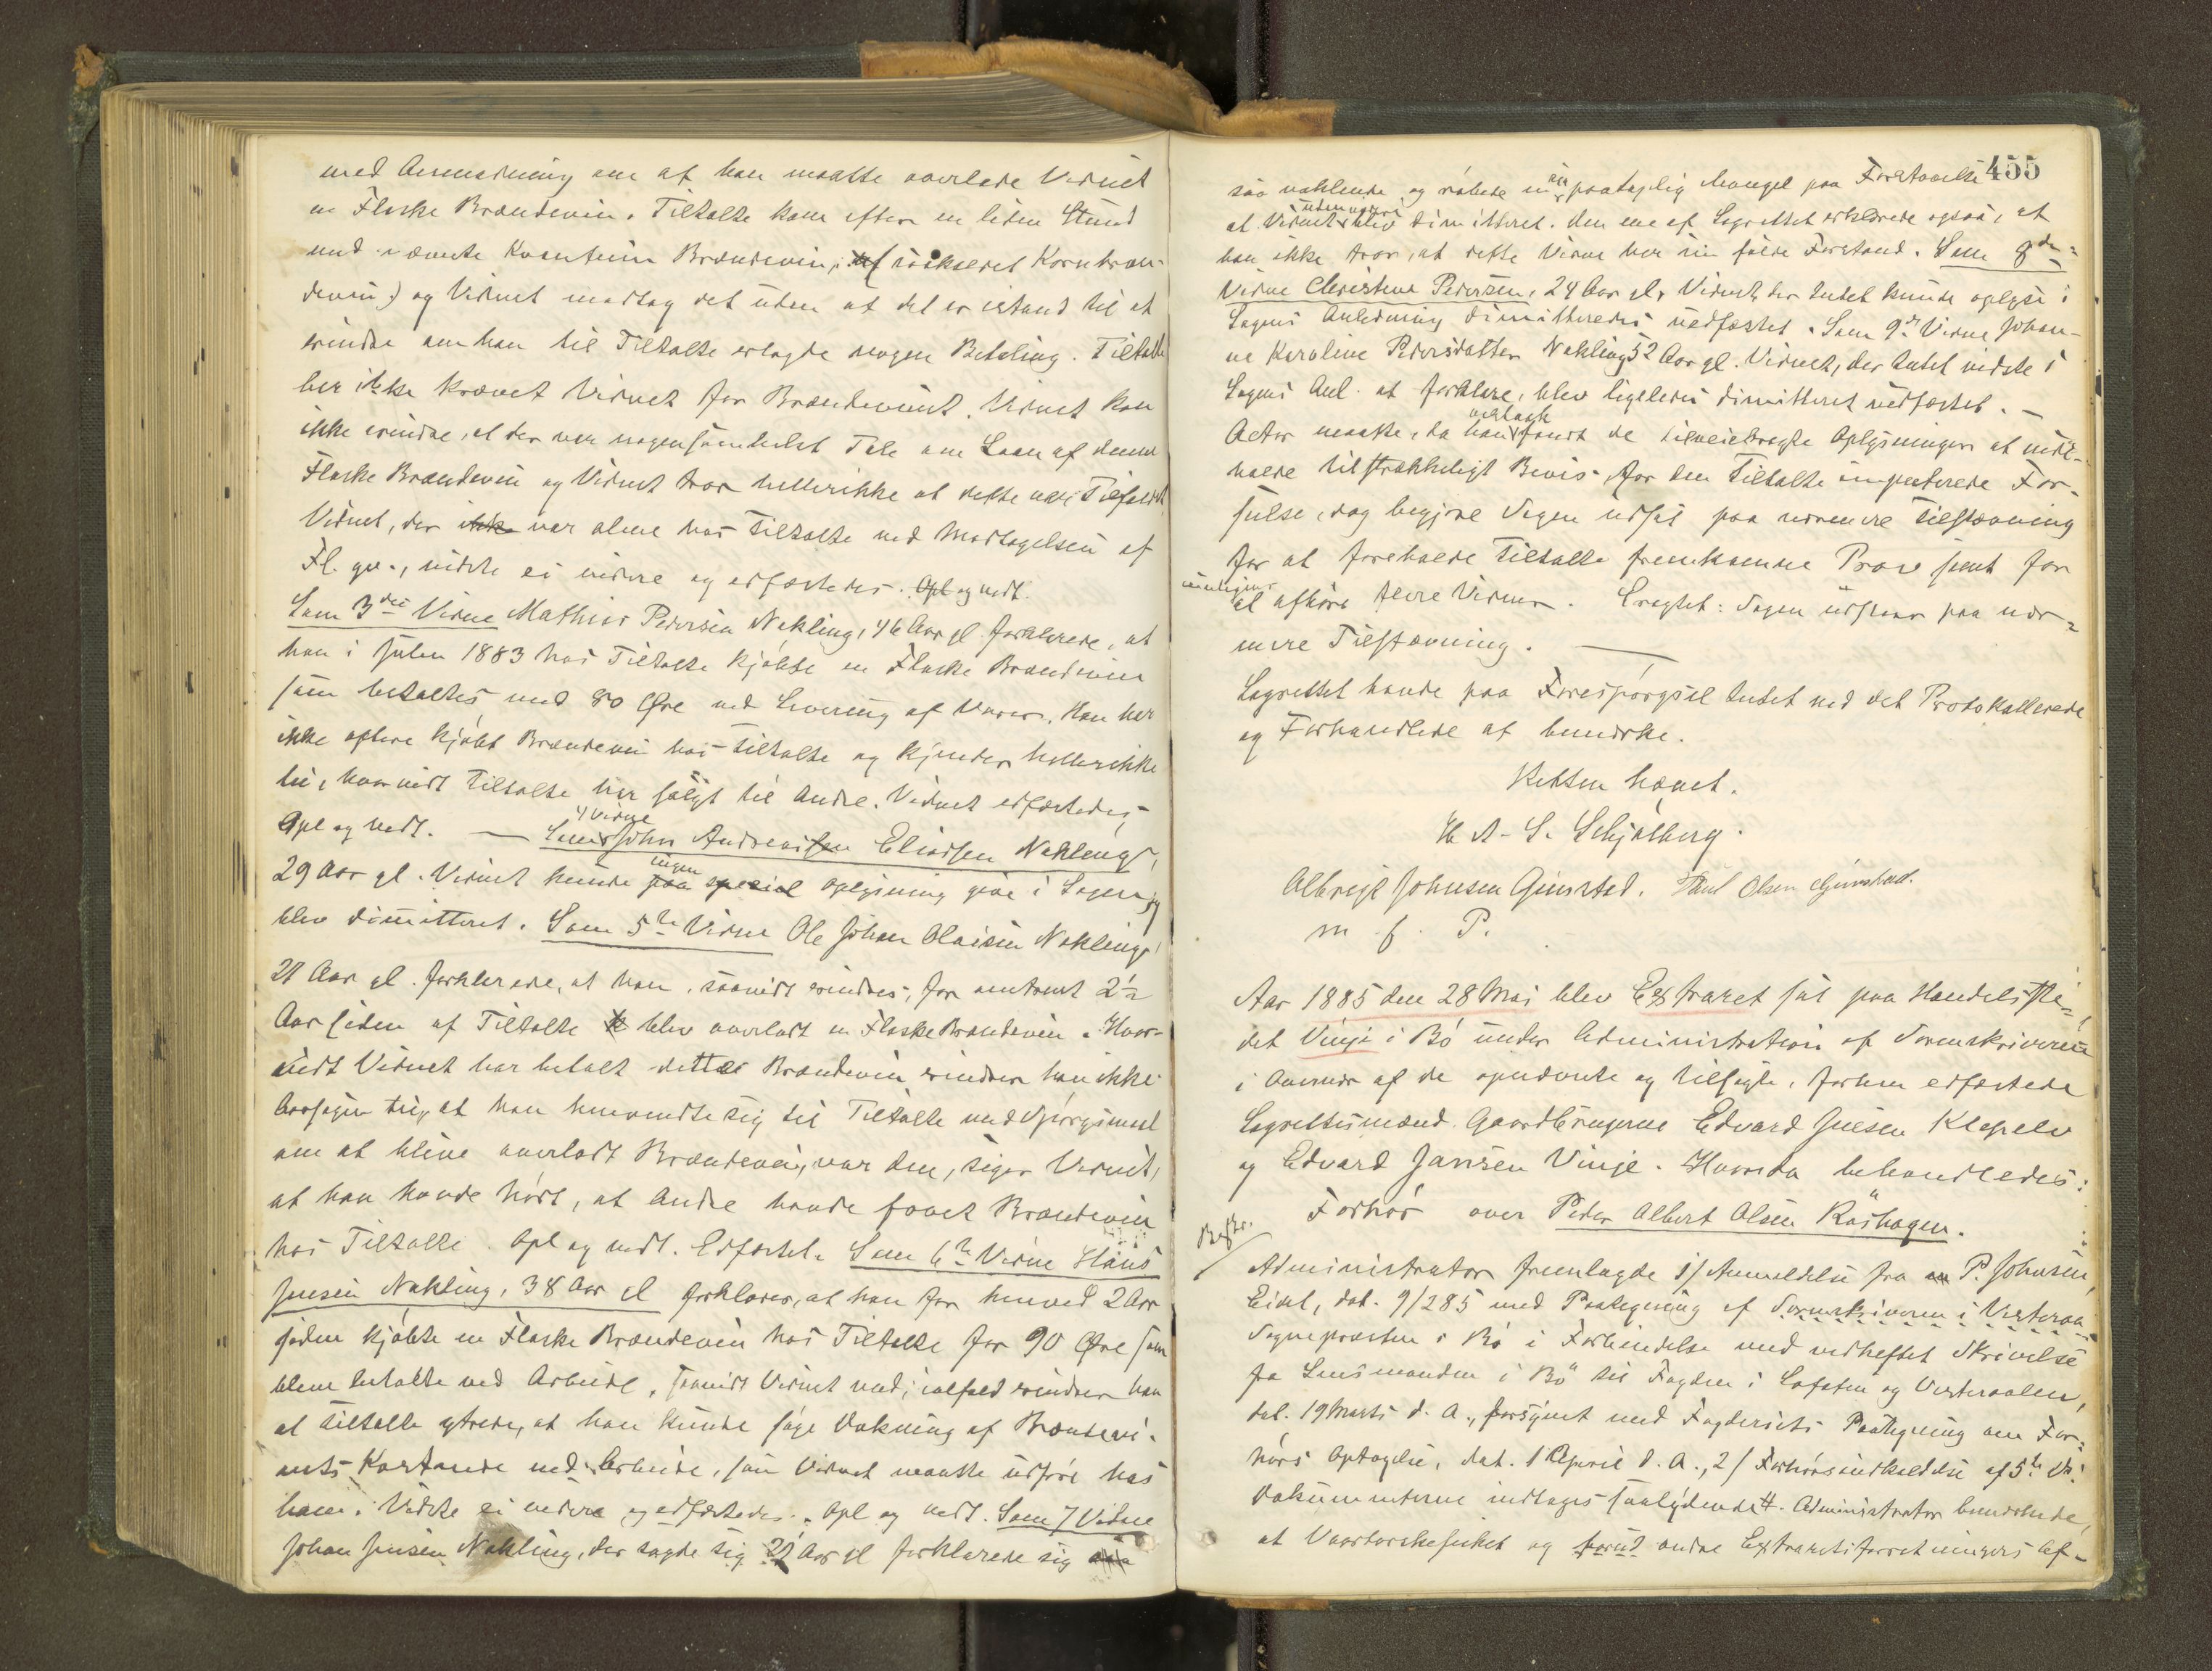 med Anmodning om at han maatte overlade Vidnet
en Flaske Brændevin. Tiltalte kom efter en liden Stund
med nævnte Kvantum Brændevin, (usikseret Kornbræn-
devin) og Vidnet modtog det uden at det er istand til at
erindre om han til Tiltalte erlagde nogen Betaling. Tiltalte
har ikke krævet Vidnet for Brændevinet. Vidnet kan
ikke erindre, at der var nogensomhelst Tale om Laan af denne
Flaske Brændevin og Vidnet tror hellerikke at dette var Tilfældet.
Vidnet, der ikke var alene hos Tiltalte ved Modtagelsen af
Fl. qv., vidste ei videre og edfæstedes. Opl og vedt.
Som 3die Vidne Mathias Pedersen Nøkling, 46 Aar gl. forklarede, at
han i Julen 1883 hos Tiltalte kjøbte en Flaske Brændevin
som betaltes med 80 Øre ved Levering af Varer. Han har
ikke oftere kjøbt Brændevin hos Tiltalte og kjender hellerikke
til, hvorvidt Tiltalte har solgt til Andre. Vidnet edfæstedes,
Opl og vedt. — Som 4 Vidne John Andreas Eliasen Nøkling,
29 Aar gl. Vidnet kunde ingen speciel Oplysning give i Sagen og
blev dimitteret. Som 5te Vidne Ole Johan Olaisen Nøkling,
21 Aar gl. forklarede, at han, saavidt erindres, for omtrent 2½
Aar siden af Tiltalte blev overladt en Flaske Brændevin. Hvor-
vidt Vidnet har betalt dette Brændevin erindrer han ikke.
Aarsagen til, at han henvendte sig til Tiltalte med Spørgsmaal
om at blive overladt Brændevin, var den, siger Vidnet,
at han havde hørt, at Andre havde faaet Brændevin
hos Tiltalte. Opl og vedt. Edfæstet. Som 6te Vidne Hans
Jensen Nøkling, 38 Aar gl forklarer, at han for henved 2 Aar
siden kjøbte en Flaske Brændevin hos Tiltalte for 90 Øre som
bleve betalte ved Arbeide, saavidt Vidnet ved; ialfald erindrer han
at Tiltalte ytrede, at han kunde søge Dækning af Brændevi-
nets Kostende ved Arbeide, som Vidnet maatte udføre hos
ham. Vidste ei videre og edfæstedes. Opl og vedt. Som 7 Vidne
Johan Jensen Nøkling, der sagde sig 21 Aar gl forklarede sig
455
saa vaklende og røbede en paatagelig Mangel paa Forstaaelse
at Vidnet udenvidere blev dimitteret. Den ene af Lagrettet erklærede ogsaa, at
han ikke tror, at dette Vidne har sin fulde Forstand. Som 8de
Vidne Christine Pedersen, 24 Aar gl. Vidnet, der Intet kunde oplyse i
Sagens Anledning dimitteredes uedfæstet. Som 9de Vidne Johan-
ne Karoline Pedersdatter Nøkling 52 Aar gl. Vidnet, der Intet vidste i
Sagens Anl. at forklare, blev ligeledes dimitteret uedfæstet. —
Actor maatte, da han fandt de tilveiebragte Oplysninger at inde-
holde tilstrækkeligt Bevis for den Tiltalte imputerede For-
seelse, dog begjære Sagen udsat paa nærmere Tilstævning
for at foreholde Tiltalte fremkomne Prov samt for
muligens at afhøre flere Vidner. Eragtet: Sagen udstaar paa nær-
mere Tilstævning. —
Lagrettet havde paa Forespørgsel Intet ved det Protokollerede
og Forhandlede at bemærke.
Retten hævet.
H A. S. Schjølberg.
Albregt Johnsen Guvstad. Paul Olsen Guvstad.
m. f. P.
Aar 1885 den 28 Mai blev Extraret sat paa Handelsste-
det Vinje i Bø under Administration af Sorenskriveren
i Overvær af de opnævnte og tilsagte, forhen edfæstede
Lagrettesmænd Gaardbrugerne Edvard Julsen Klepelv
og Edvard Jansen Vinje. Hvorda behandledes:
Forhør over Peder Albert Olsen Råshagen.
Administrator fremlagde 1/ Anmeldelse fra P. Johnsen,
Eidet, dat. 9/2 85 med Paategning af Sorenskriveren i Vesteraa-
Sognepræsten i Bø i Forbindelse med vedheftet Skrivelse
fra Lensmanden i Bø til Fogden i Lofoten og Vesteraalen,
dat. 19 Marts d. A., forsynet med Fogderiets Paategning om For-
hørs Optagelse, dat. 1 April d. A., 2/ Forhørsindkaldelse af 5te ds.
Dokumenterne indtages saalydende #. Administrator bemærkede,
at Vaartorskefisket og forud andre Extraretsforretningers Af-